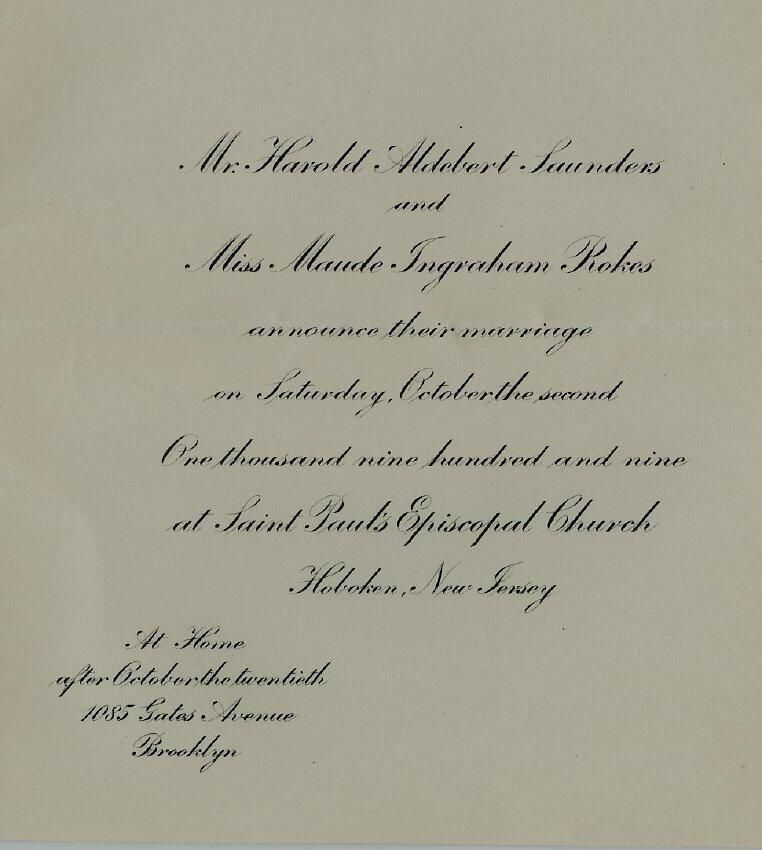 Mr. Harold Aldebert Saunders
and
Miss Maude Ingraham Rokes
announce their marriage
on Saturday, October the second
One thousand nine hundred and nine
at Saint Paul's Episcopal Church
Hoboken, New Jersey
At Home
after October the twentieth
1085 Gates Avenue
Brooklyn